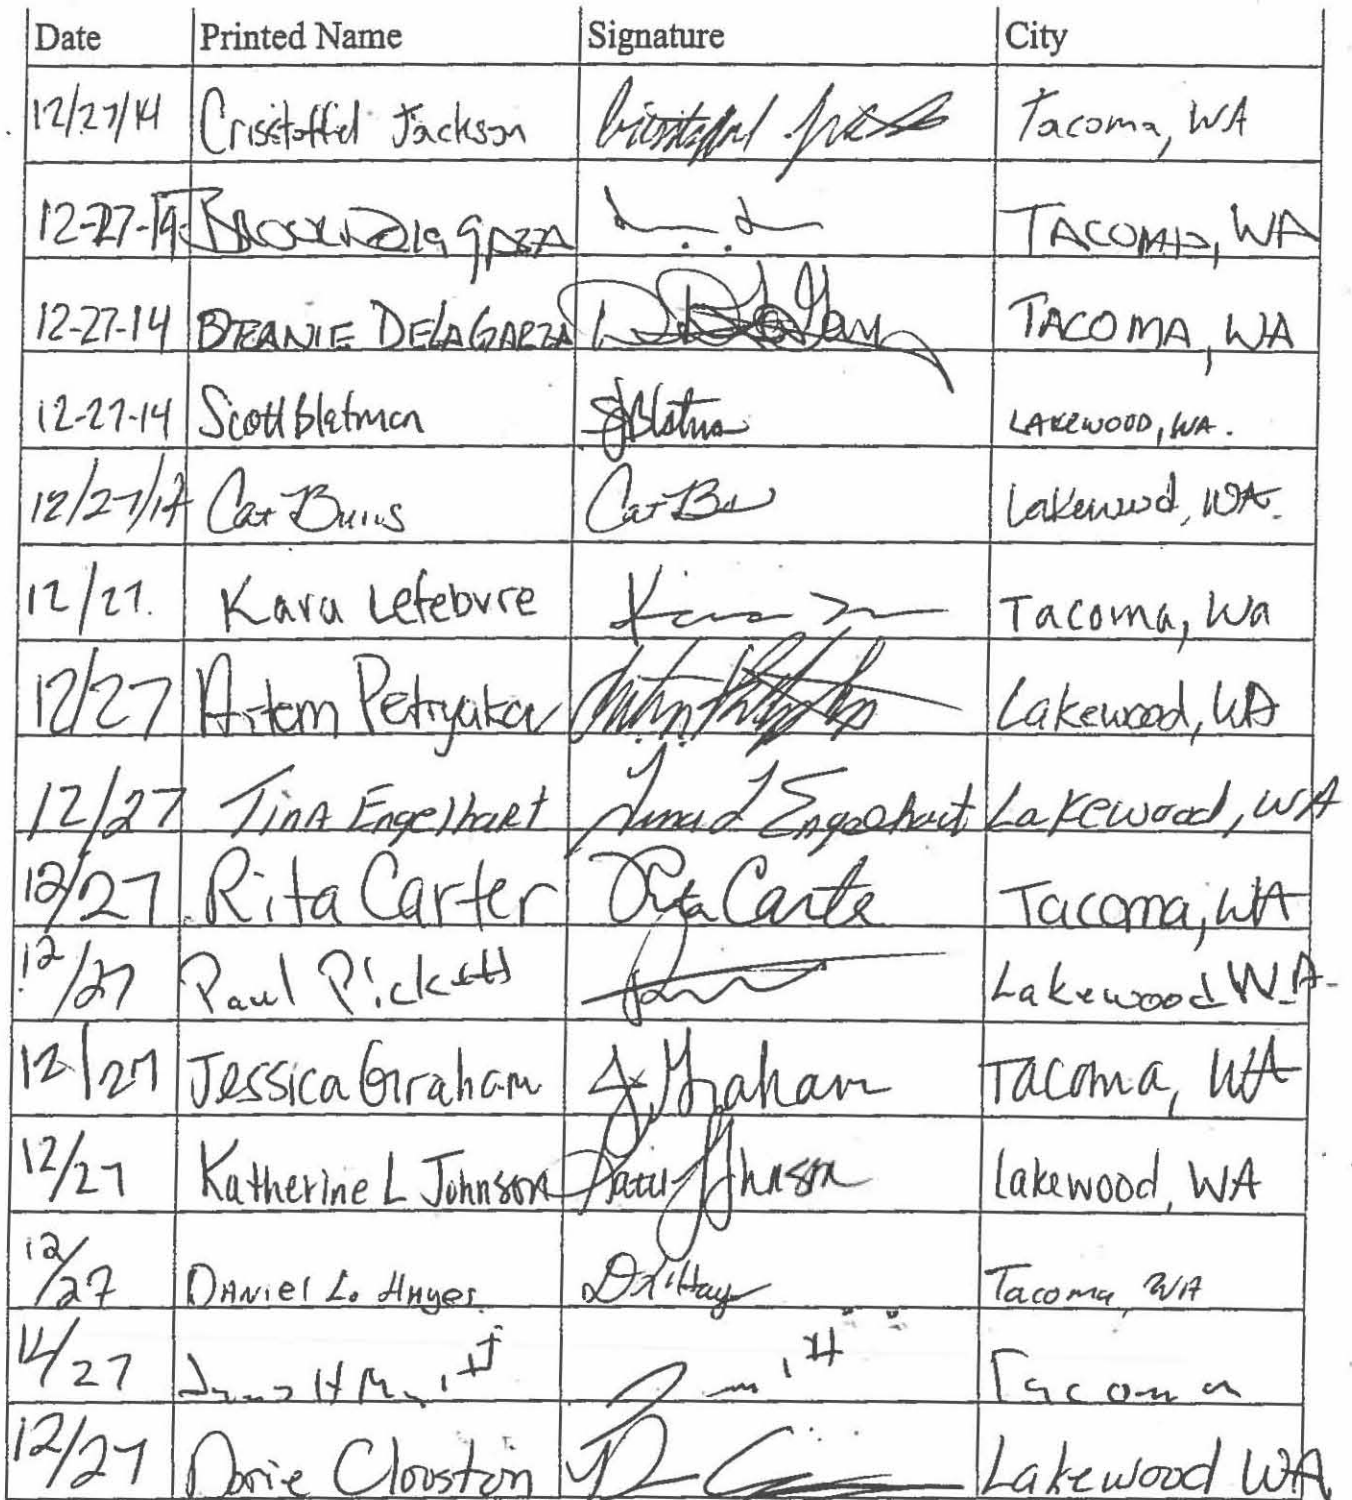 Date Printed Name Signature City
12/27/14 Cristoffel Jackson Tacoma, WA
12-27-14 TACOMA, WA
12-27-14 BERNIE DELAGARZA TACOMA, WA
12-27-14 Scott Blatman LAKEWOOD, WA.
12/27/14 Cat Burns Cat B Lakewood, WA.
12/27. Kara Lefebvre Tacoma, Wa
12/27 Artem Petryaka Lakewood, WA
12/27 Tina Engelhart Engelhart Lakewood, WA
12/27 Rita Carter Rita Carte Tacoma, WA
12/27 Paul Pickett Lakewood WA-
12/27 Jessica Graham J. Graham Tacoma, WA
12/27 Katherine L Johnson Johnson Lakewood, WA
12/27 Daniel L. Hayes Tacoma, WA
12/27 Tacoma
12/27 Dorie Clouston Lakewood WA